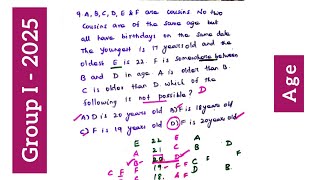 Group I - 2025
Age
9. A, B, C, D, E & F are cousins. No two
cousins are of the same age but
all have birthdays on the same date
The youngest is 17 years old and the
oldest E is 22. F is somewhere between
B and D in age. A is older than B.
C is older than D. which of the
following is not possible? D
A) D is 20 years old B) F is 18 years old
C) F is 19 years old D) F is 20 years old
E 22 E A
A 21 C B D
B 20 D
F 19 F F
C F 18